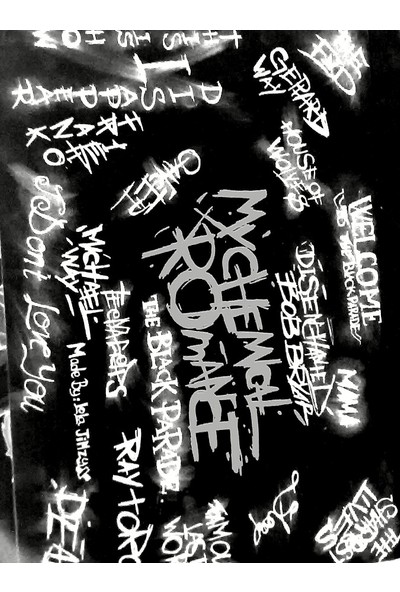 THIS IS HOW
I DISAPPEAR
FRANK
I Don't Love You
MICHAEL
WAY
TEENAGERS
Made By:
THE BLACK PARADE
MY CHEMICAL
ROMANCE
GERARD
WAY
HOUSE OF
WOLVES
WELCOME
TO THE BLACK PARADE
DISENCHANTED
BOB BRYAR
MAMA
RAY TORO
DEAD
FAMOUS
LAST
WORDS
Sleep
THE
SHARPEST
LIVES
THE
END